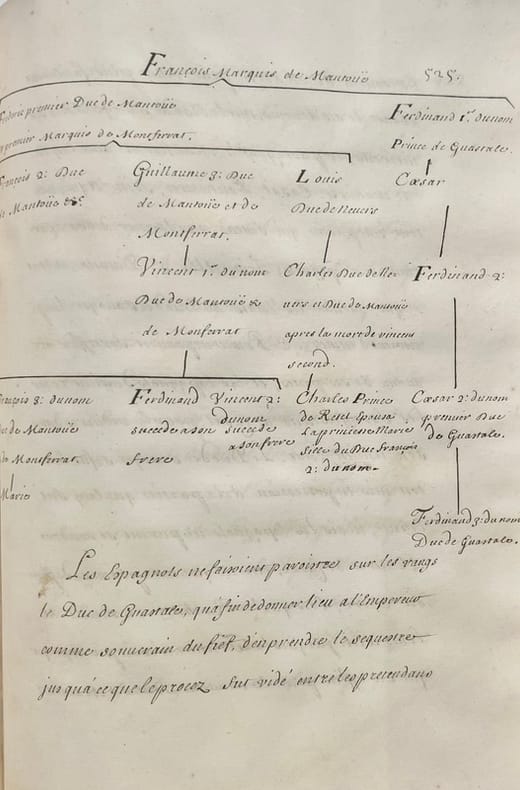 François Marquis de Mantoüe
525.
premier Duc de Mantoüe
premier Marquis de Montferrat.
Ferdinand 1r. du nom
Prince de Guastale.
François 2: Duc
de Mantoüe &c.
Guillaume 3: Duc
de Mantoüe et de
Montferrat.
Louis
Duc de Nevers
Cæsar
Vincent 1r. du nom
Duc de Mantoüe &
de Monferrat
Charles Duc de Ne
vers et Duc de Mantoüe
apres la mort de vincent
second.
Ferdinand 2:
François 3: du nom
Duc de Mantoüe
de Montferrat.
Marie
Ferdinand
succede a son
frere
Vincent 2:
du nom
succede
a son frere
Charles Prince
de Retel Epousa
la princesse Marie
fille du Duc François
2: du nom.
Cæsar 2: du nom
premier Duc
de Guastale.
Ferdinand 3: du nom
Duc de Guastale.
Les Espagnols ne faisoient paroistre sur les rangs
le Duc de Guastale, qu'a fin de donner lieu a l'Empereur
comme souverain du fief, d'en prendre le sequestre
jusqu'a ce que le procez fut vidé entre les pretendans